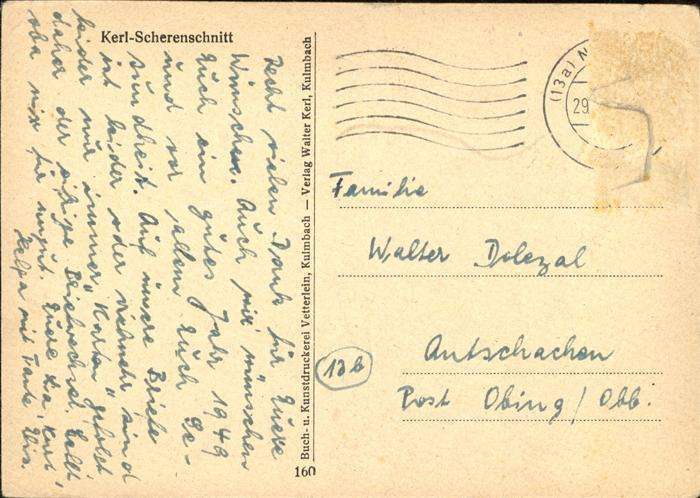 Kerl-Scherenschnitt
Recht vielen Dank für Euere
Wünsche. Auch wir wünschen
Euch ein gutes Jahr 1949
und vor allem Euch Ge-
sundheit. Auf unsere Briefe
ist leider oder vielmehr sind
leider nur immer "Karten" gefolgt
daher der
mit Tante
Buch- u. Kunstdruckerei Vetterlein, Kulmbach — Verlag Walter Kerl, Kulmbach
160
(13a) N
29
Familie
Walter Dolezal
13b
Antschachen
Post Obing / Obb.